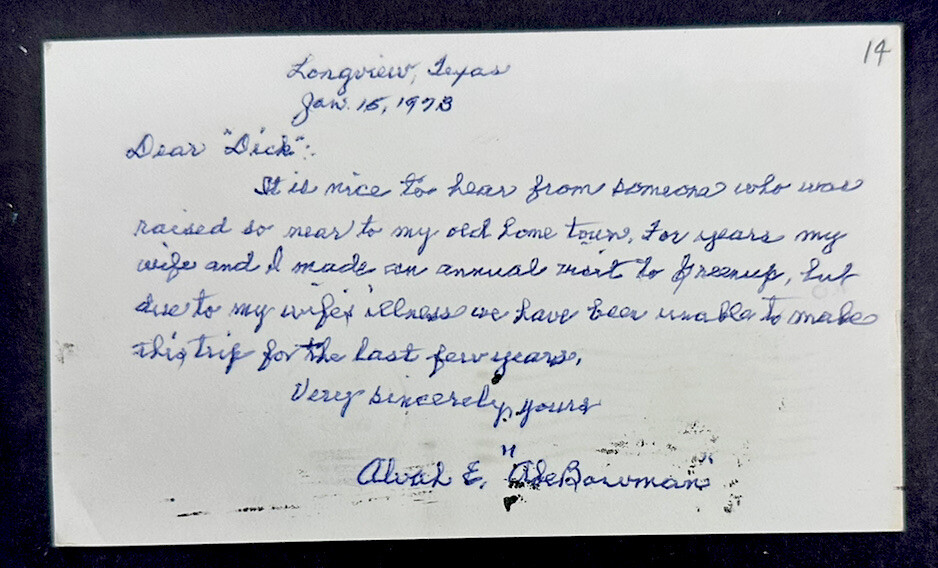 14
Longview, Texas
Jan. 15, 1973
Dear "Dick":
It is nice to hear from someone who was
raised so near to my old home town. For years my
wife and I made an annual visit to Greenup, but
due to my wife's illness we have been unable to make
this trip for the last few years.
Very sincerely yours
Alvah E. "Abe Bowman"